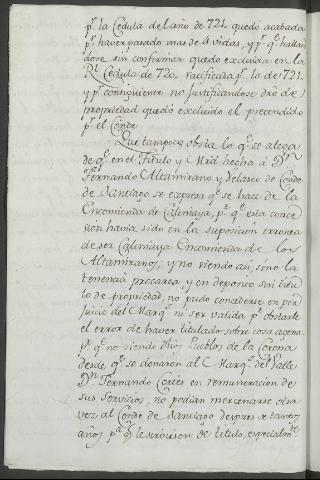 pr. la Cedula del año de 721. quedó acabada
pr. haver pasado mas de 4 vidas, y pr. qe. hallan
dose sin confirmar quedó excluida en la
Rl. Cedula de 720. ratificada pr. la de 721.
y pr. consiguiente no justificandose dro de
propriedad quedó excluido el pretendido
pr. el Conde
Que tampoco obsta lo qe. se alega
de qe. en el Titulo y Mrd hecha à Dn.
Fernando Altamirano y Velasco de Conde
de Santiago se expresa qe. se hace de la
Encomienda de Calimaya, pr. qe. esta conce
sion havia sido en la suposicion erronea
de ser Calimaya Encomienda de los
Altamiranos, y no siendo asi, sino la
tenencia precarea y en deposito sin titu
lo de propriedad, no pudo concederse en per
juicio del Marqs. ni ser valida pr. obstarle
el error de haver titulado sobre cosa agena.
pr. qe. no siendo dhos Pueblos de la Corona
desde qe. se donaron al Marqs. del Valle
Dn. Fernando Cortés en remuneracion de
sus Servicios, no podian mercenarse otra
vez al Conde de Santiago despues de tantos
años pa. qe. le sirviesen de titulo, especialmte.